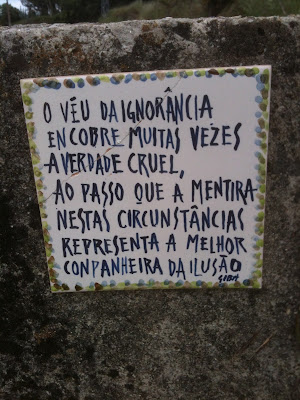 O VÉU DA IGNORÂNCIA
ENCOBRE MUITAS VEZES
A VERDADE CRUEL,
AO PASSO QUE A MENTIRA
NESTAS CIRCUNSTÂNCIAS
REPRESENTA A MELHOR
CONPANHEIRA DA ILUSÃO